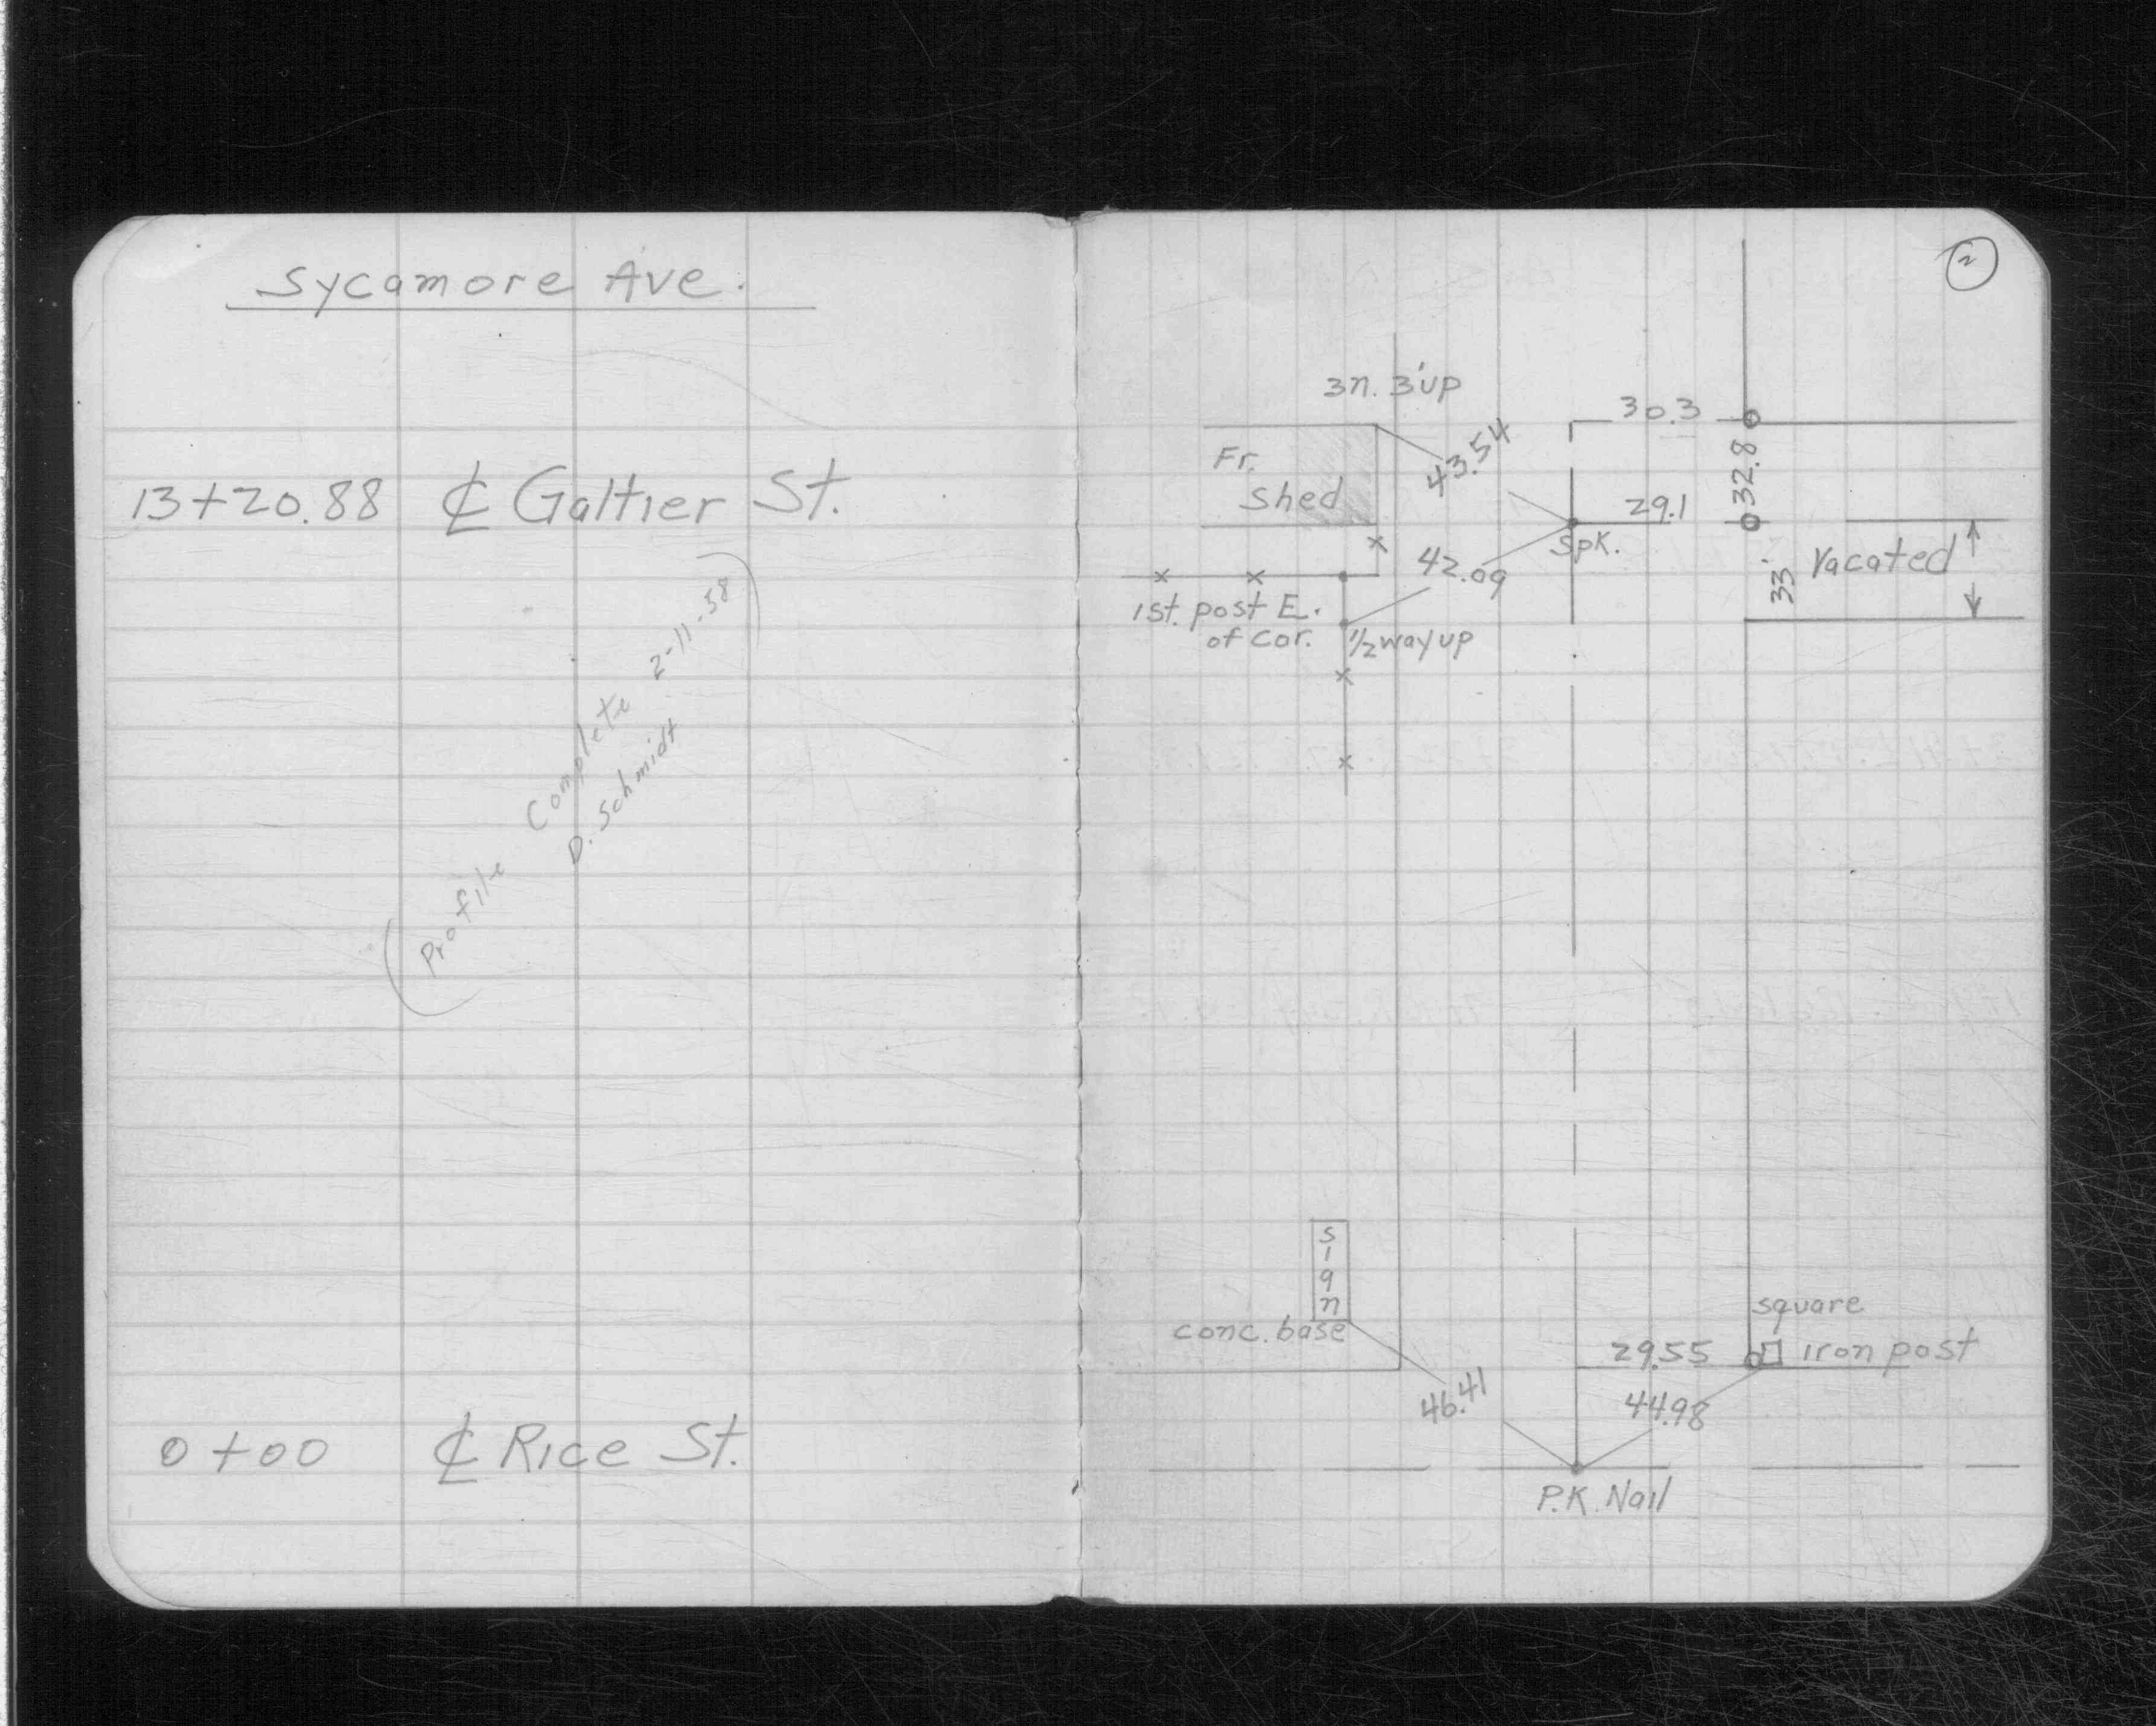 Sycamore Ave.
13+20.88 ℄ Galtier St.
(Profile Complete 2-11-58)
D. Schmidt
0+00 ℄ Rice St.
2
3n. 3'up
30.3
Fr.
Shed
43.54
32.80
29.1
Spk.
42.09
Vacated
33'
1st. post E.
of cor.
1/2 way up
sign
conc. base
square
29.55
iron post
46.41
44.98
P.K. Nail